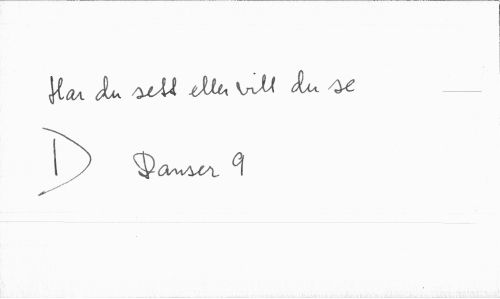 Har du sett eller vill du se
D Danser 9